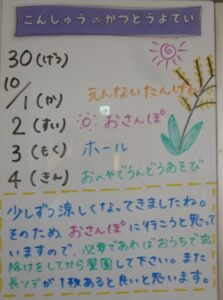 こんしゅうのかつどうよてい
30(げつ)
10/1(か) えんないたんけん
2(すい) おさんぽ
3(もく) ホール
4(きん) おへやでうんどうあそび
少しずつ涼しくなってきましたね。
そのため、おさんぽに行こうと思って
いますので、必要であればおうちで虫
除けをしてから登園して下さい。また
長ソデが1枚あると良いと思います。